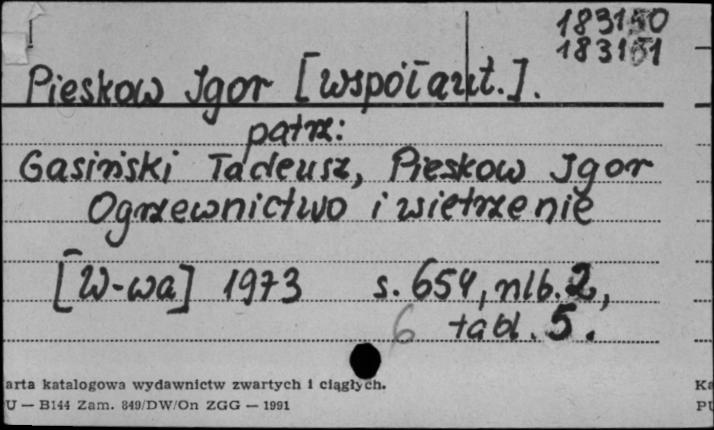 183150
183151
Pieskow Igor [współaut.].
patrz:
Gasiński Tadeusz, Pieskow Igor
Ogrzewnictwo i wietrzenie
[W-wa] 1973 s. 654, nlb. 2,
6 tabl. 5.
arta katalogowa wydawnictw zwartych i ciągłych. Ka
U — B144 Zam. 849/DW/On ZGG — 1991 PU